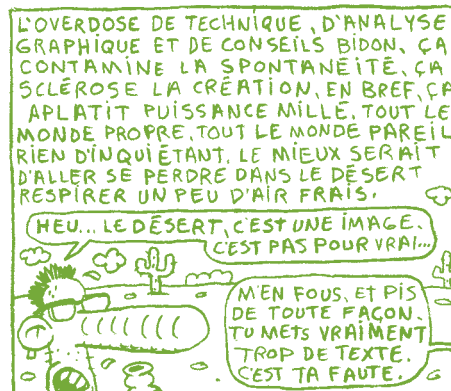 L'OVERDOSE DE TECHNIQUE, D'ANALYSE
GRAPHIQUE ET DE CONSEILS BIDON, ÇA
CONTAMINE LA SPONTANÉITÉ, ÇA
SCLÉROSE LA CRÉATION, EN BREF, ÇA
APLATIT PUISSANCE MILLE. TOUT LE
MONDE PROPRE, TOUT LE MONDE PAREIL
RIEN D'INQUIÉTANT. LE MIEUX SERAIT
D'ALLER SE PERDRE DANS LE DÉSERT
RESPIRER UN PEU D'AIR FRAIS.
HEU... LE DÉSERT, C'EST UNE IMAGE.
C'EST PAS POUR VRAI...
M'EN FOUS, ET PIS
DE TOUTE FAÇON.
TU METS VRAIMENT
TROP DE TEXTE.
C'EST TA FAUTE.